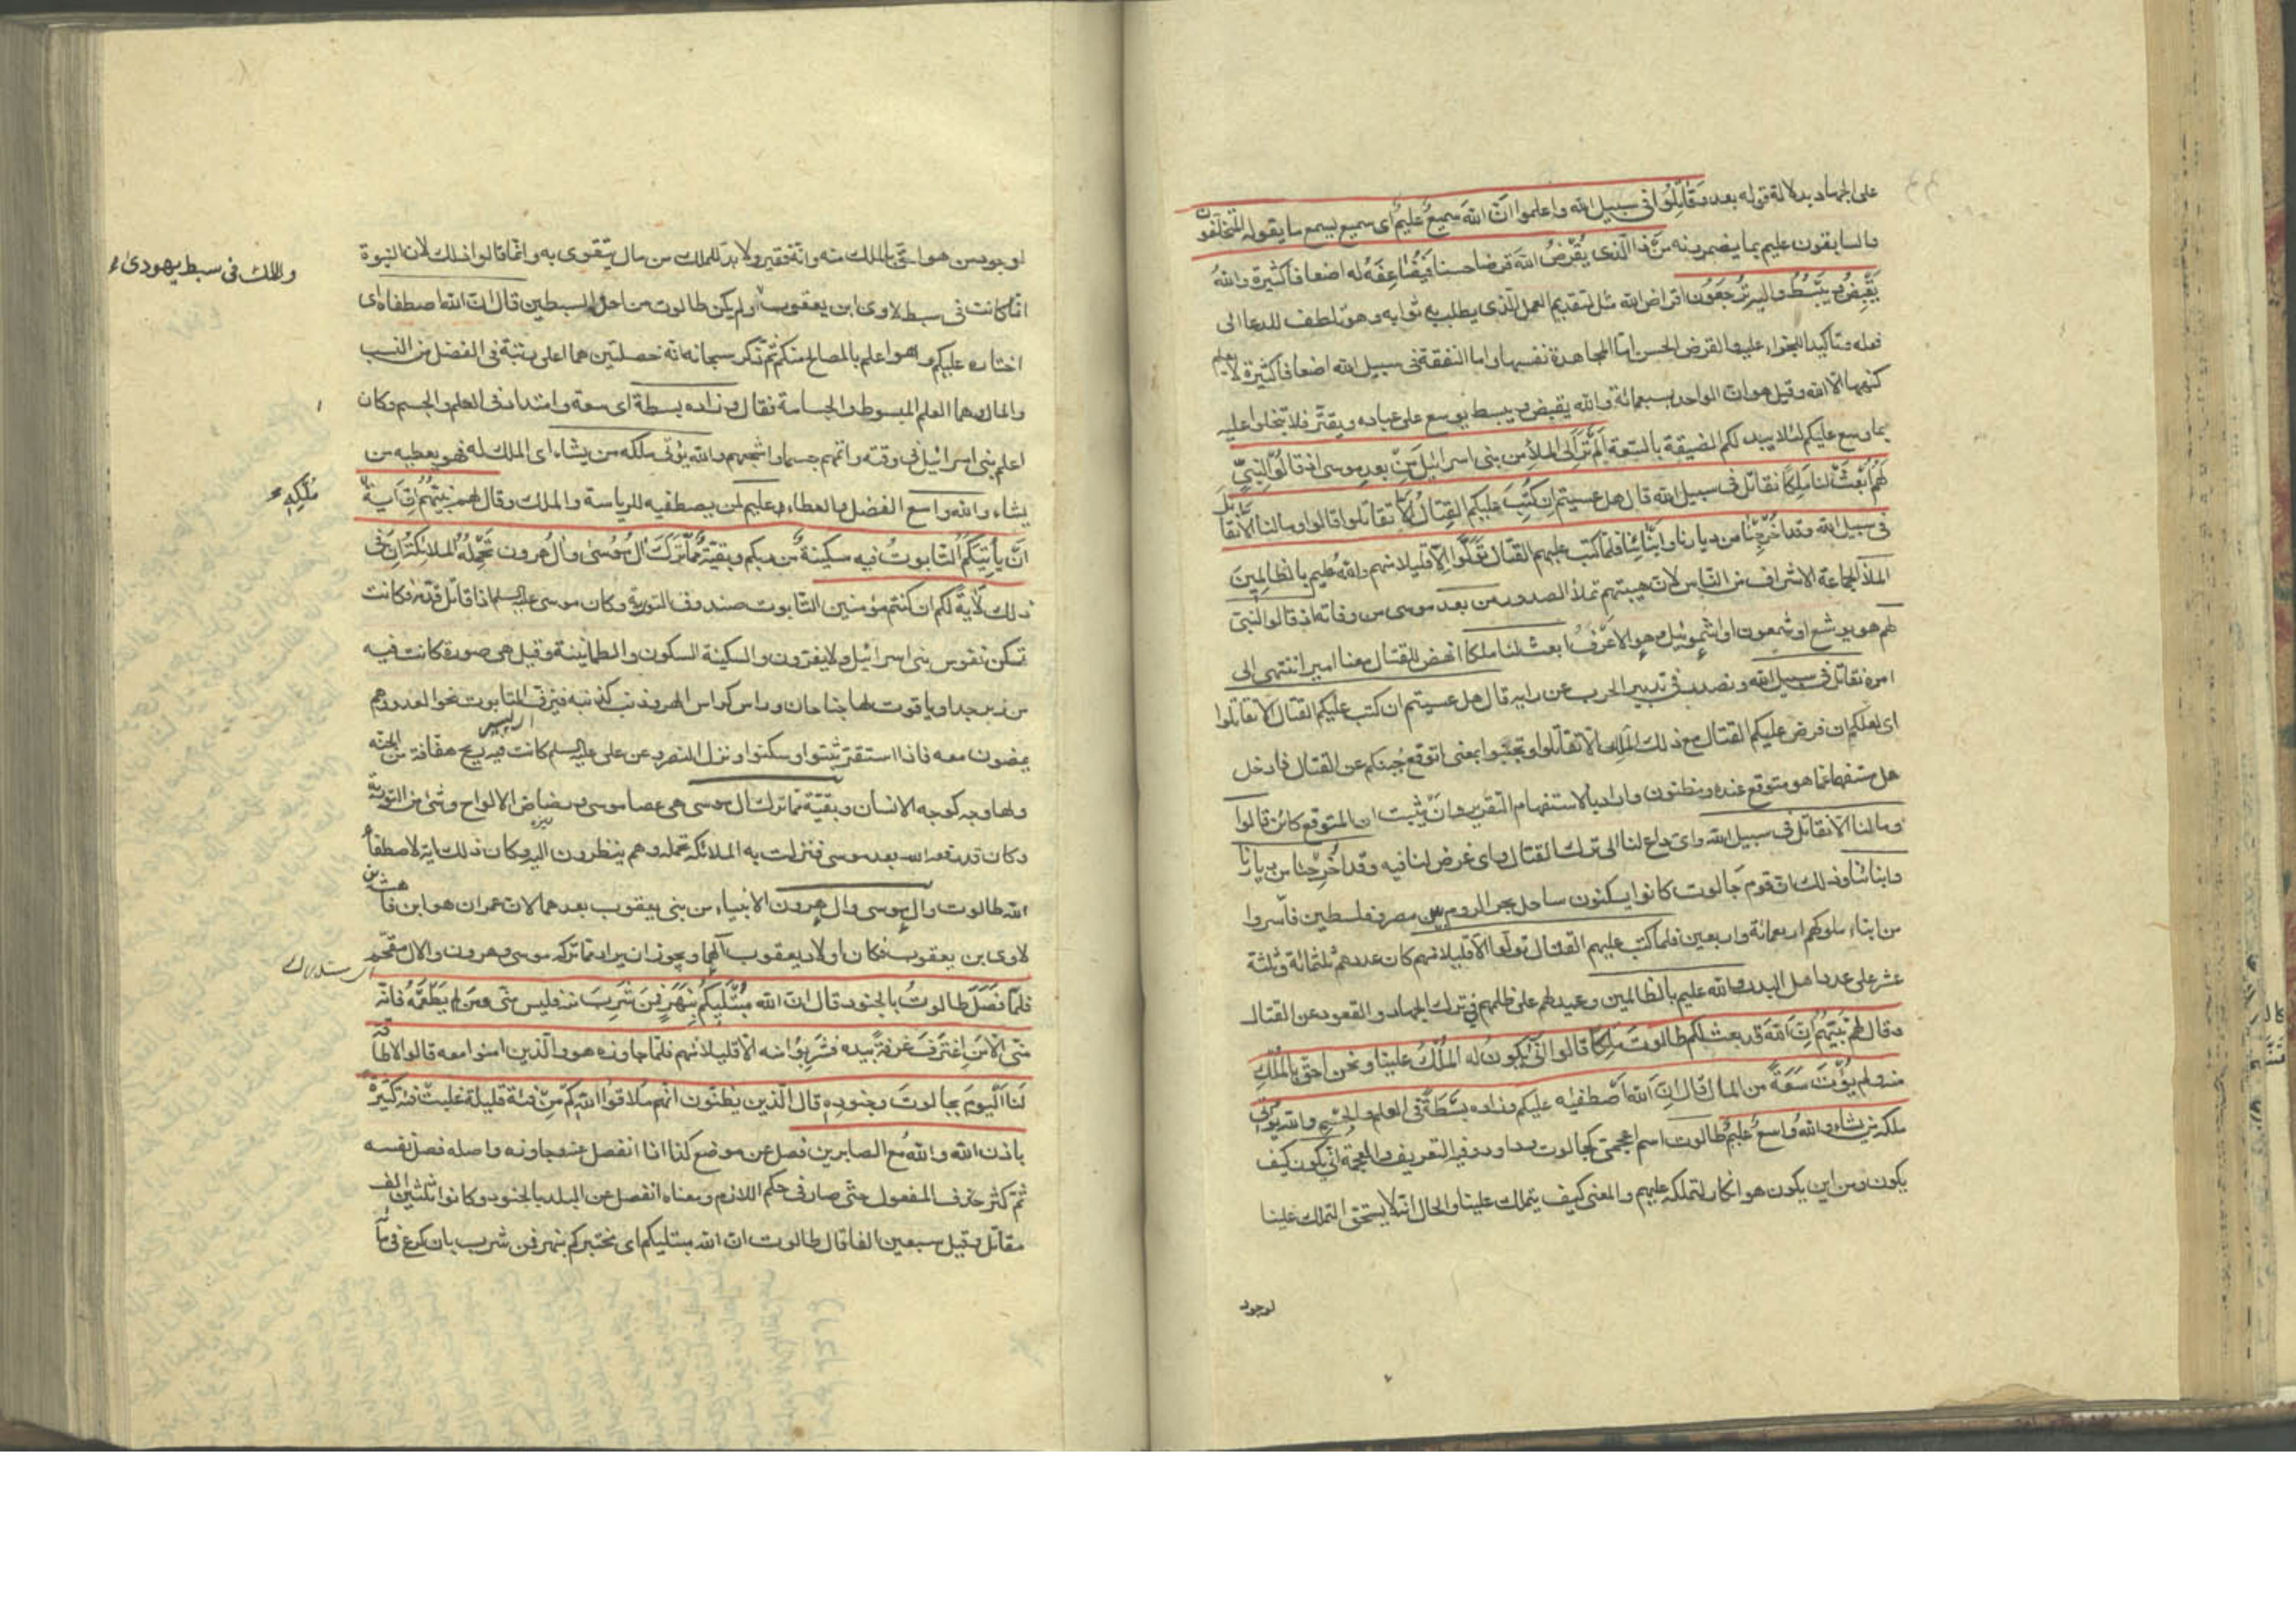 على الجهاد بدلالة قوله بعد وَقَاتِلُوا فى سبيل الله واعلموا انّ اللهَ سميعٌ عليمٌ اى سميع يسمع ما يقوله المتخلّفون
والسابقون عليم بما يضمرونه مَنْ ذا الّذى يُقْرِضُ اللهَ قرضا حسنا فَيُضَاعِفَهُ له اضعافا كثيرة واللهُ
يَقْبِضُ ويَبْسُطُ واليه تُرْجَعُون اقراض الله مثل لتقديم العمل الّذى يطلب به ثوابه وهو لطف للدعا الى
فعله وتاكيد للجزاء عليه والقرض الحسن امّا المجاهدة نفسها واما النفقة فى سبيل الله اضعافا كثيرة لا يعلم
كنهها الّا الله وقيل هو ان الواحد بسبعمائة والله يقبض ويبسط يوسع على عباده ويقتّر فلا تبخلوا عليه
بما وسع عليكم لئلا يبدلكم الضيقة بالسّعة اَلَمْ تَرَ اِلَى الملأ من بنى اسرائيل مِنْ بعد موسى اذ قالوا لِنَبِىٍّ
لهُمُ ابْعَثْ لنا مَلِكًا نقاتل فى سبيل الله قال هل عسيتم اِن كُتِبَ عليكم القِتالُ اَلّا تقاتلوا قالوا وما لنا الّا نقاتل
فى سبيل الله وقد اُخْرِجْنا من ديارنا واَبْنائِنا فلمّا كتب عليهم القتال تَوَلَّوْا اِلّا قليلا منهم والله عليم بالظالِمِينَ
الملأ الجماعة الاشراف من النّاس لان هيبتهم تملأ الصدور من بعد موسى من وفاته اذ قالوا لنبىّ
لهم هو يوشع او شمعون او اشموئيل وهو الاعرف ابعث لنا ملكا انهض للقتال معنا اميرا ننتهى الى
امره نقاتل فى سبيل الله ونصدر فى تدبير الحرب عن رايه قال هل عسيتم ان كتب عليكم القتال الّا تقاتلوا
اى لعلكم ان فرض عليكم القتال مع ذلك الملك الّا تقاتلوا وتجبنوا بمعنى اتوقع جُبنكم عن القتال فادخل
هل مستفهما عمّا هو متوقع عنده ومظنون واراد بالاستفهام التقرير وانّه يثبت انّ المتوقع كائن قالوا
وما لنا الّا نقاتل فى سبيل الله واىّ داع لنا الى ترك القتال واى غرض لنا فيه وقد اُخرِجنا من ديارنا
وابنائنا وذلك ان قوم جَالوت كانوا يسكنون ساحل بحر الروم بين مصر وفلسطين فاَسروا
من ابناء ملوكهم اربعمائة واربعين فلما كتب عليهم القتال تولّوا الّا قليلا منهم كان عددهم ثلثمائة وثلثة
عشر على عدد اهل البدر والله عليم بالظالمين وعيد لهم على ظلمهم فى ترك الجهاد والقعود عن القتال
وقال لهُم نَبِيّهُم اِنّ اللهَ قد بعث لكم طالوتَ مَلِكًا قالوا اَنّى يكونُ له المُلْكُ علينا ونحن احق بالمُلْكِ
منه ولم يُؤْتَ سَعَةً من المال قال اِنّ اللهَ اصْطَفَيه عليكم وزاده بَسْطَةً فى العلم والجِسْمِ والله يُؤْتى
ملكه من يشاء واللهُ واسعٌ عليمٌ طالوت اسم اعجمىّ كجالوت وداود وفيه التعريف والعجمة انّى يكون كيف
يكون ومن اين يكون هو انكار لتملكه عليهم والمعنى كيف يتملك علينا والحال انّه لا يستحق التملك علينا
لوجود
لوجود من هو احقّ بالملك منه وانّه فقير ولا بدّ للملك من مال يتقوى به وانّما قالوا ذلك لان النبوة
انّما كانت فى سبط لاوى ابن يعقوب ولم يكن طالوت من احد السبطين قال انّ الله اصطفاه اى
والملك فى سبط يهودى
اختاره عليكم وهو اعلم بالمصالح منكم ثم ذكر سبحانه انه خصلتين هما اعلى رتبة فى الفضل من النسب
والمال وهما العلم المبسوط والجسامة فقال وزاده بسطة اى سعة وامتدادا فى العلم والجسم وكان
اعلم بنى اسرائيل فى وقته واتمهم جسما واشجعهم والله يؤتى ملكه من يشاء اى الملك له فهو يعطيه من
يشاء والله واسع الفضل والعطاء عليم لمن يصطفيه للرياسة والملك وقال لهم نَبِيّهُم اِنّ اٰيةَ
مُلْكِهِ
اَنْ يأتيَكُمُ التّابوتُ فيه سكينةٌ من ربكم وبقيّةٌ ممّا تَرَكَ آلُ مُوسٰى وآلُ هٰرون تَحْمِلُهُ الملائكةُ اِنّ فى
ذلك لآيةً لكم ان كنتم مؤمنين التّابوت صندوق التورية وكان موسى عليه السلم اذا قاتل قدّمه فكانت
تسكن نفوس بنى اسرائيل ولا يفرّون والسكينة السكون والطمانينة وقيل هى صورة كانت فيه
من زبرجد او ياقوت لها جناحان وراس كراس الهر وذنب كذنبه فيزفّ التابوت نحو العدو وهم
يمضون معه فاذا استقرّ ثبتوا وسكنوا ونزل النصر وعن على عليه السلم كانت فيه ريح هفّافة من الجنة
ولها وجه كوجه الانسان وبقيّة ممّا ترك آل موسى هى عصا موسى ورضاض الالواح وشىء من التورية
وكان قد رفعه الله بعد موسى فنزلت به الملائكة تحمله وهم ينظرون اليه وكان ذلك اية لاصطفاء
الله طالوت وآل موسى وآل هرون الانبياء من بنى يعقوب بعدهما لان عمران هو ابن قاهث بن
لاوى بن يعقوب فكان اولاد يعقوب آلهما ويجوز ان يراد ممّا تركه موسى وهرون والال مقحم
فلمّا فَصَلَ طالوتُ بالجنود قال انّ الله مُبْتَلِيكُم بِنَهَرٍ فمَنْ شَرِبَ منه فليس منّى ومَن لم يَطْعَمْهُ فانّه
منّى الّا مَنِ اغْتَرَفَ غرفةً بيده فشَرِبُوا منه الّا قليلا منهم فلمّا جاوزه هو والّذين امنوا معه قالوا لا طاقة
لَنَا الْيَومَ بجالوتَ وجنودِه قال الّذين يظنّون انهم ملاقوا الله كَم مِن فئة قليلة غلبت فئة كَثِيرةً
باذن الله واللهُ مع الصابرين فصل عن موضع كذا اذا انفصل عنه وجاوزه واصله فصل نفسه
ثمّ كثر حذف المفعول حتّى صار فى حكم اللازم ومعناه انفصل عن البلد بالجنود وكانوا ثلثين الف
مقاتل وقيل سبعين الفا قال طالوت انّ الله مبتليكم اى مختبركم بنهر فمن شرب بان كرع فى ماء